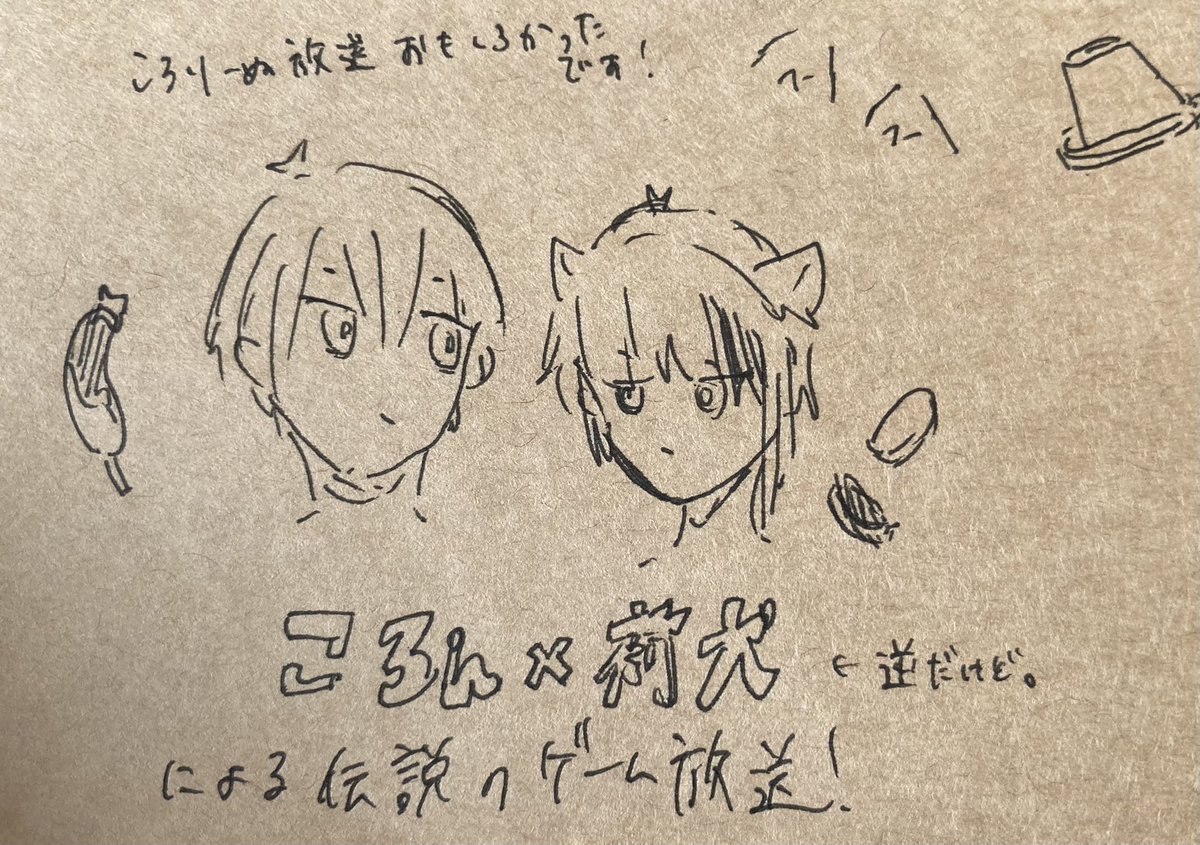 ころりーぬ放送おもしろかった
です!
フー
フー
ころん×莉犬
←逆だけど。
による伝説のゲーム放送!